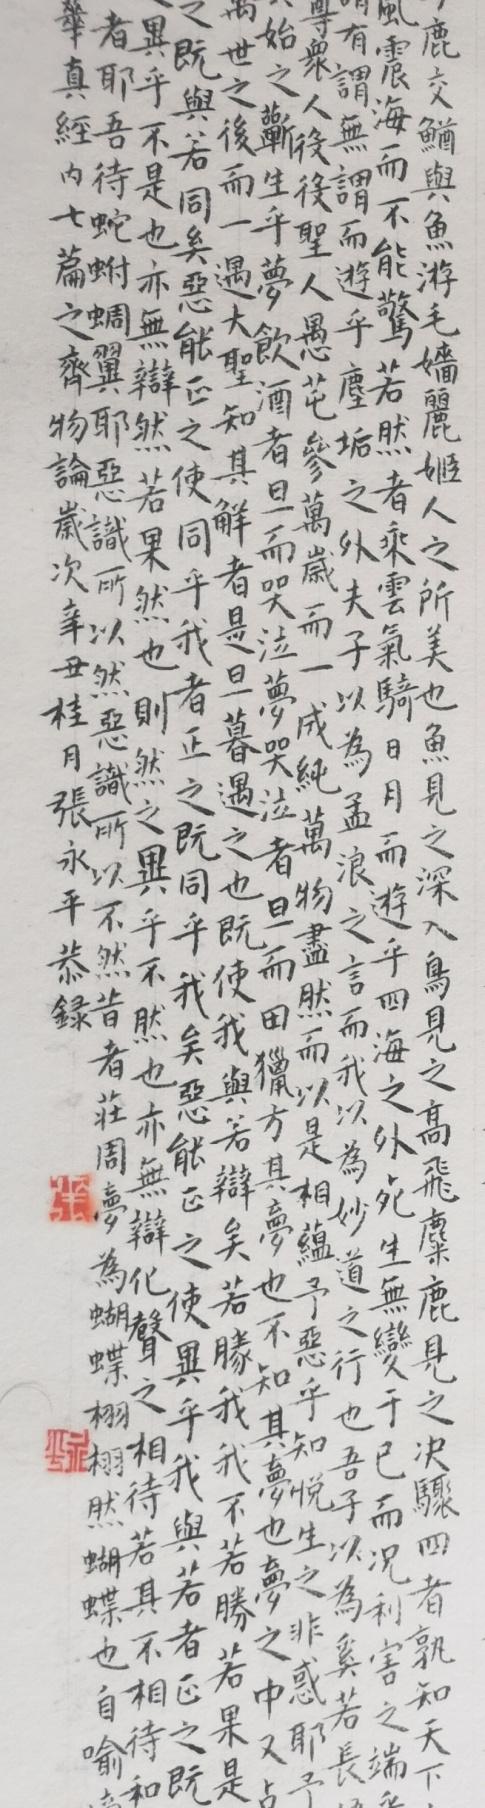 鹿交鰌與魚游毛嬙麗姬人之所美也魚見之深入鳥見之高飛麋鹿見之决驟四者孰知天下
風震海而不能驚若然者乘雲氣騎日月而遊乎四海之外死生無變于已而况利害之端
謂有謂無謂而遊乎塵垢之外夫子以為孟浪之言而我以為妙道之行也吾子以為奚若長
尊衆人役役聖人愚芚參萬歲而一成純萬物盡然而以是相蘊予惡乎知悦生之非惑耶予
始之蘄生乎夢飲酒者旦而哭泣夢哭泣者旦而田獵方其夢也不知其夢也夢之中又占
萬世之後而一遇大聖知其解者是旦暮遇之也既使我與若辯矣若勝我我不若勝若果是
之既與若同矣惡能正之使同乎我者正之既同乎我矣惡能正之使異乎我與若者正之既
異乎不是也亦無辯然若果然也則然之異乎不然也亦無辯化聲之相待若其不相待和
者耶吾待蛇蚹蜩翼耶惡識所以然惡識所以不然昔者莊周夢為蝴蝶栩栩然蝴蝶也自喻
華真經内七篇之齊物論歲次辛丑桂月張永平恭録